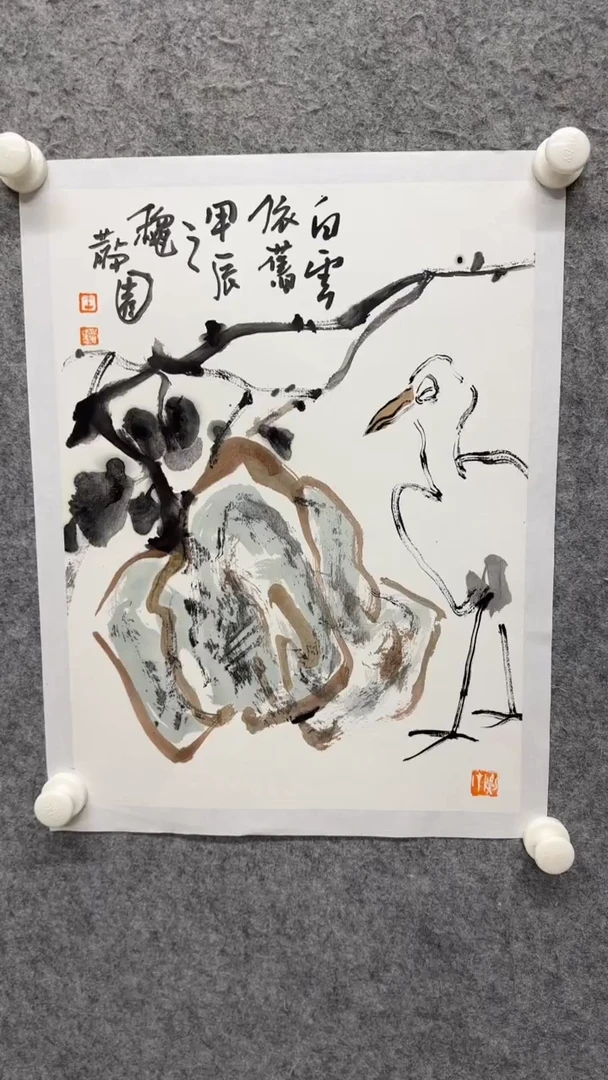 白雲
依舊
甲辰
之
穐
園